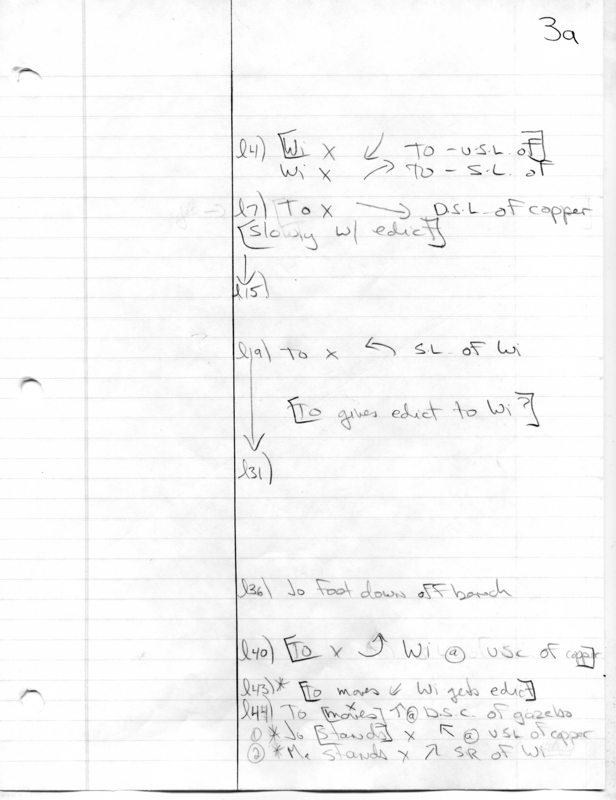 3a
l4) [Wi X ↙ To - U.S.L. of]
Wi X ↗ To - S.L. of
l7) To X → D.S.L. of copper
[Slowly w/ edict]
l15)
l19) To X ← S.L. of Wi
[To gives edict to Wi?]
l31)
l36) Jo Foot down off bench
l40) [To X ⤴ Wi @ USL of copper]
l43)* [To moves ↙ Wi gets edict]
l44) To [moves] X ↑ @ D.S.C. of gazebo
① * Jo [Stands] X ↖ @ USL of copper
② * Me Stands X ↗ SR of Wi